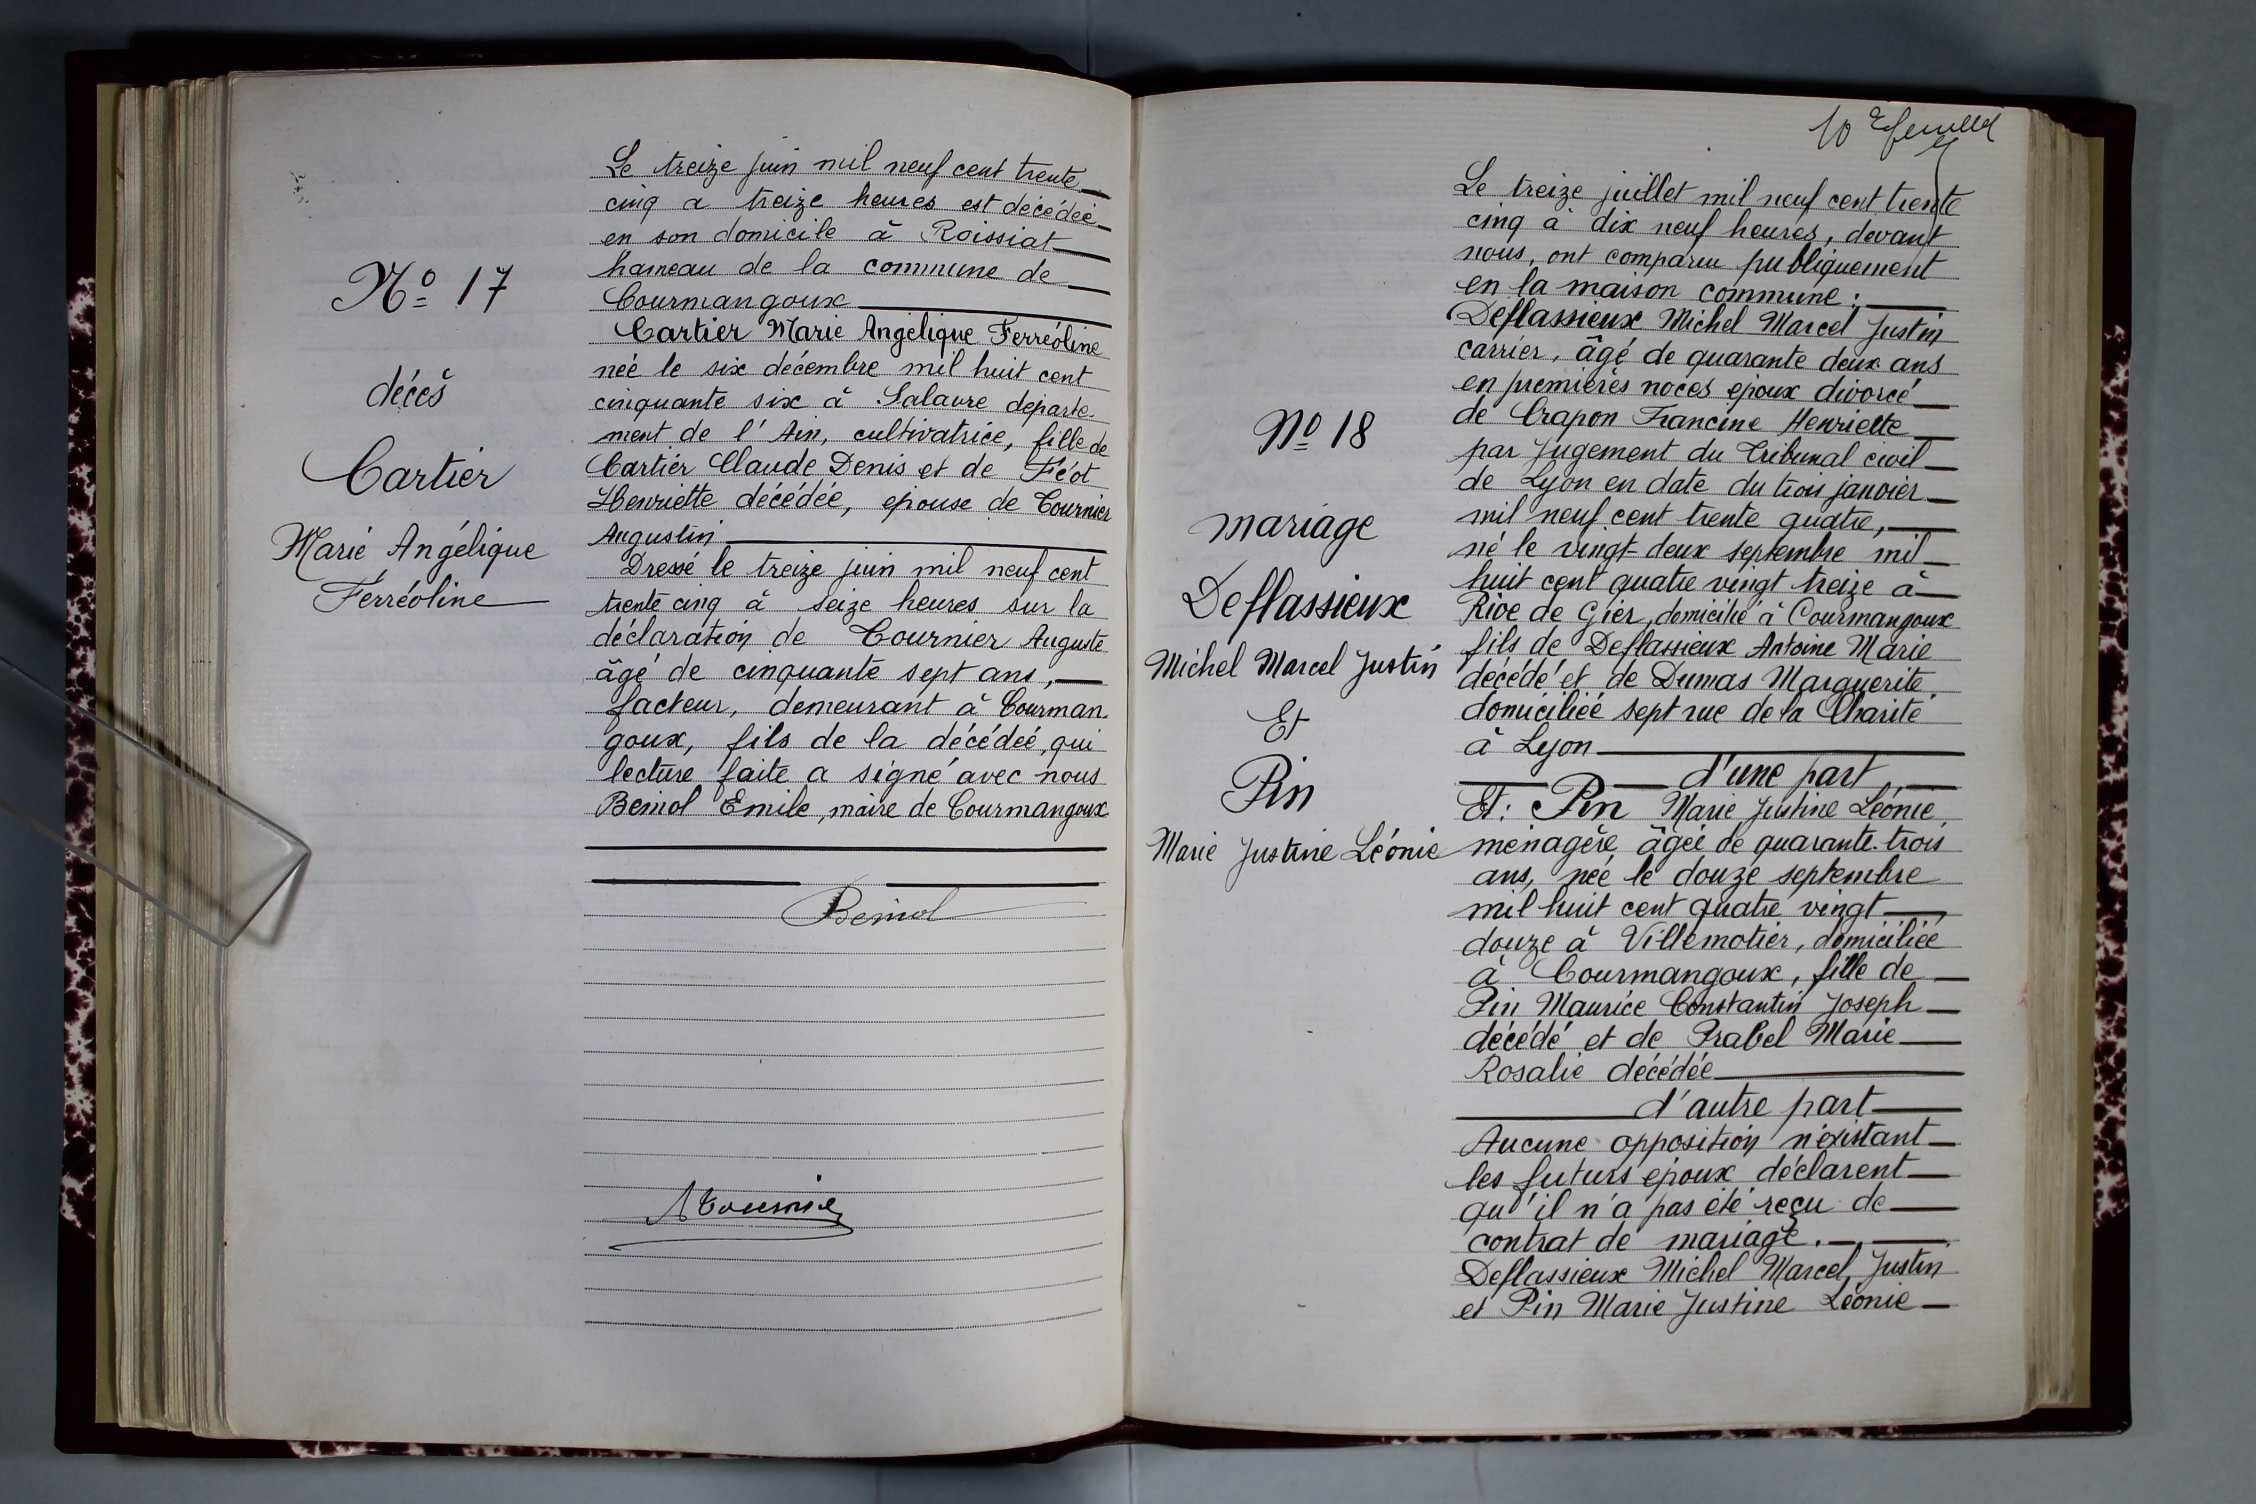 Nº 17
décès
Cartier
Marie Angélique
Ferréoline
Le treize juin mil neuf cent trente
cinq a treize heures est décédée
en son domicile à Roissiat
hameau de la commune de
Courmangoux
Cartier Marie Angélique Ferréoline
née le six décembre mil huit cent
cinquante six à Salavre departe-
ment de l'Ain, cultivatrice, fille de
Cartier Claude Denis et de Féot
Henriette décédée, epouse de Tournier
Augustin
Dressé le treize juin mil neuf cent
trente cinq à seize heures sur la
déclaration de Tournier Auguste
âgé de cinquante sept ans,
facteur, demeurant à Courman-
goux, fils de la décédée, qui
lecture faite a signé avec nous
Beniol Emile, maire de Courmangoux
Beniol
A Tournier
10 e feuillet
Nº 18
mariage
Deflassieux
Michel Marcel Justin
Et
Pin
Marie Justine Léonie
Le treize juillet mil neuf cent trente
cinq à dix neuf heures, devant
nous, ont comparu publiquement
en la maison commune :
Deflassieux Michel Marcel Justin
carrier, âgé de quarante deux ans
en premières noces epoux divorcé
de Crapon Francine Henriette
par Jugement du Tribunal civil
de Lyon en date du trois janvier
mil neuf cent trente quatre,
né le vingt-deux septembre mil
huit cent quatre vingt treize à
Rive de Gier, domicilié à Courmangoux
fils de Deflassieux Antoine Marie
décédé et de Dumas Marguerite
domiciliée sept rue de la Charité
à Lyon
d'une part
Et: Pin Marie Justine Léonie,
ménagère, âgée de quarante-trois
ans, née le douze septembre
mil huit cent quatre vingt
douze à Villemotier, domiciliée
à Courmangoux, fille de
Pin Maurice Constantin Joseph
décédé et de Prabel Marie
Rosalie décédée
d'autre part
Aucune opposition n'existant
les futurs époux déclarent
qu'il n'a pas été reçu de
contrat de mariage.
Deflassieux Michel Marcel Justin
et Pin Marie Justine Léonie